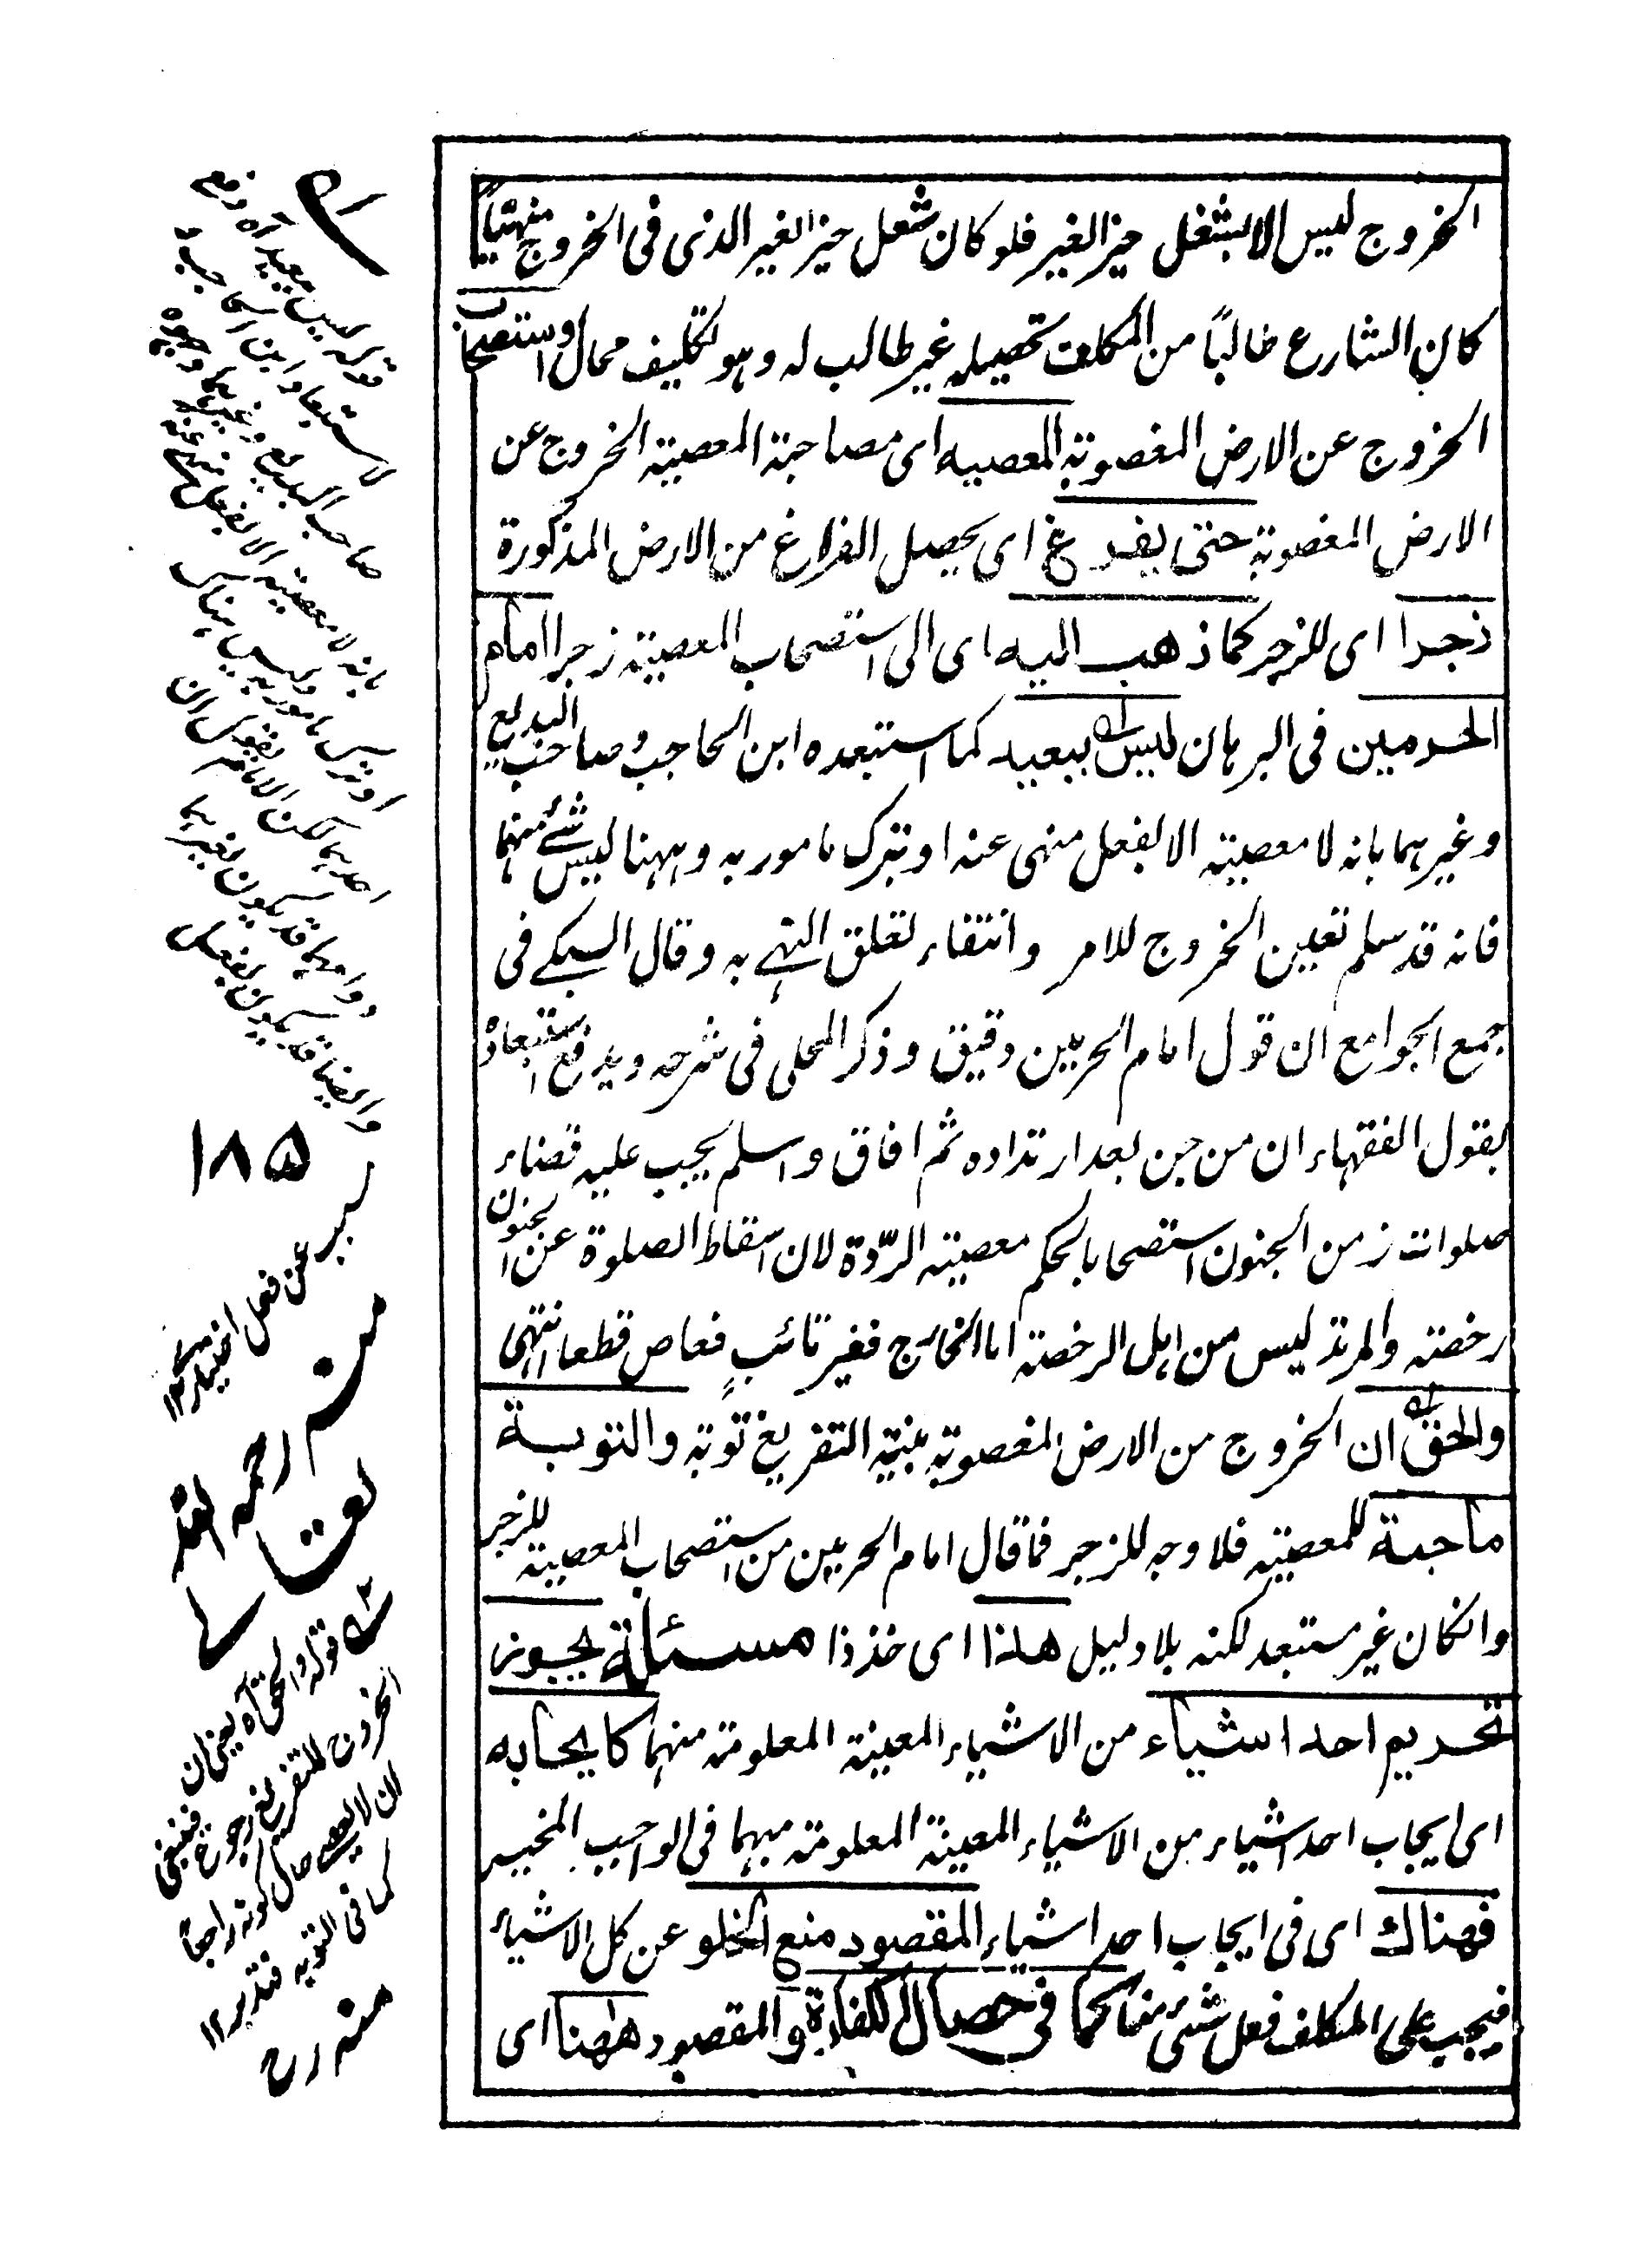 الخروج ليس الا بشغل حيز الغير فلو كان شغل حيز الغير الذى فى الخروج منهيّاً
كان الشارع طالباً من المكلف تحصيله غير طالب له وهو تكليف محال واستصحاب
الخروج عن الارض المغصوبة المعصيه اى مصاحبة المعصية الخروج عن
الارض المغصوبة حتى يفرغ اى يحصل الفراغ من الارض المذكورة
زجرا اى للزجر كما ذهب اليه اى الى استصحاب المعصية زجرا امام
الحرمين فى البرهان ليس ببعيد كما استبعده ابن الحاجب وصاحب البديع
وغيرهما بانه لا معصية الا بفعل منهى عنه او بترك مامور به وههنا ليس شئ منهما
فانه قد سلم تعين الخروج للامر وانتفاء تعلق النهى به وقال السبكى فى
جمع الجوامع ان قول امام الحرمين دقيق وذكر المحلى فى شرحه ويدفع استبعاد
بقول الفقهاء ان من جن بعد ارتداده ثم افاق واسلم يجب عليه قضاء
صلوات زمن الجنون استصحابا لحكم معصية الردّة لان اسقاط الصلوة عن المجنون
رخصة والمرتد ليس من اهل الرخصة اما الخارج فغير تائبٍ فعاص قطعا انتهى
والحق ان الخروج من الارض المغصوبة بنية التفريغ توبة والتوبة
ماحية للمعصية فلا وجه للزجر فما قال امام الحرمين من استصحاب المعصية للزجر
وانكان غير مستبعد لكنه بلا دليل هذا اى خذ ذا مسئلة يجوز
تحريم احد اشياء من الاشياء المعينة المعلومة منهما كايجابه
اى ايجاب احد اشياء من الاشياء المعينة المعلومة مبهما فى الواجب المخير
فهناك اى فى ايجاب احد اشياء المقصود منع الخلو عن كل الاشياء
فيجب على المكلف فعل شئ منها كما فى خصال الكفارة والمقصود ههنا اى
قوله ليس ببعيد آه دفع
لاستبعاد ابن الحاجب و
صاحب البديع وغيرهما وجوه
بانه لا معصية الا بفعل منهى عنه
او ترك مامور به وليس هناك
احدهما لكن الامام يقول ان
دوامهما قد يكون بغيرهما
وايضا قد يكون بفعل
١٨٥
سبب عن فعل اختيارى ١٢
منه رحمه الله
تعالى
قوله والحق آه يعنى ان
الخروج للتفريغ رجوع فينبغى
ان لا يعصى حال كونه راجعا
كما فى التوبة فتدبر ١٢
منه رح